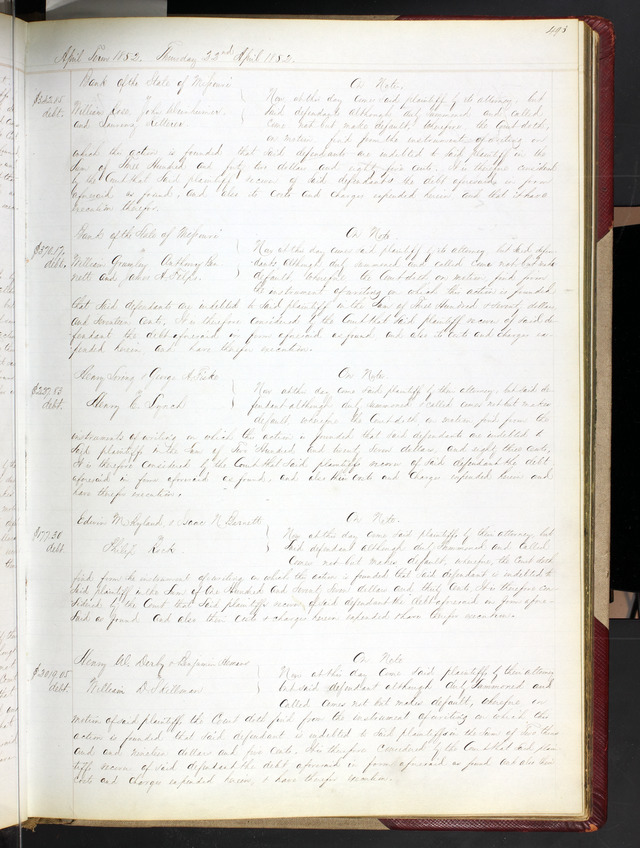 April Term 1852. Thursday 22nd April 1852.
Bank of the State of Missouri
On Note.
debt.
William
John
and
Now at this day come said plaintiff by its attorney, but
said defendants although duly summoned and called,
come not but make default, wherefore the Court doth,
on motion find from the instrument of writing on
which the action is founded that said defendants are indebted to said plaintiff in the
Sum of Three Hundred and forty two dollars and eighty five cents. It is therefore considered
by the Court that Said plaintiff recover of said defendants the debt aforesaid in form
aforesaid as found, and also its costs and charges expended herein and that it have
execution therefor.
Bank of the State of Missouri
On Note
$370.17
debt.
William
and James A.
Now at this day comes said plaintiff by its attorney but said defen-
dants although duly summoned and called come not but make
default, wherefore the Court doth, on motion find from
the instrument of writing on which the action is founded
that said defendants are indebted to Said plaintiff in the Sum of Three Hundred & Seventy dollars
and Seventeen Cents, It is therefore considered by the Court that Said plaintiff recover of said de-
fendants the debt aforesaid in form aforesaid as found and also its costs and charges ex-
pended herein and have therefor execution.
Henry
On Note
debt.
Henry C. Lynch
Now at this day come said plaintiffs by their attorney, but said de-
fendant although duly summoned & called comes not but makes
default, wherefore the Court doth, on motion find from the
instruments of writing on which the action is founded that said defendant is indebted to
Said plaintiffs in the Sum of Two Hundred and twenty Seven dollars and eighty three Cents,
It is therefore Considered by the Court that Said plaintiffs recover of said defendant the debt
aforesaid in form aforesaid as found, and also their costs and charges expended herein and
have therefor execution.
Edwin M. Ryland & Isaac N. Barnett
On Note.
$177.30
debt.
Philip Rock
Now at this day come said plaintiffs by their attorney, but
Said defendant although duly Summoned and Called
Comes not but makes default, wherefore, the Court doth
find from the instrument of writing on which the action is founded that said defendant is indebted to
Said plaintiffs in the Sum of One Hundred and Seventy Seven dollars and thirty Cents. It is therefore con-
sidered by the Court that Said plaintiffs recover of said defendant the debt aforesaid in form afore-
said as found and also their Costs & charges herein expended & have therefor execution.
Henry W. Derby & Benjamin
On Note
$2019.05
debt.
William D. Skillman
Now at this day Come Said plaintiffs by their attorney
but said defendant although duly Summoned and
Called comes not but makes default, wherefore, on
motion of said plaintiffs the Court doth find from the instrument of writing on which this
action is founded that said defendant is indebted to Said plaintiffs in the Sum of Two thou-
sand and nineteen dollars and five Cents. It is therefore Considered by the Court that said plain-
tiffs recover of said defendant the debt aforesaid in form aforesaid as found and also their
costs and charges expended herein, & have therefor execution.